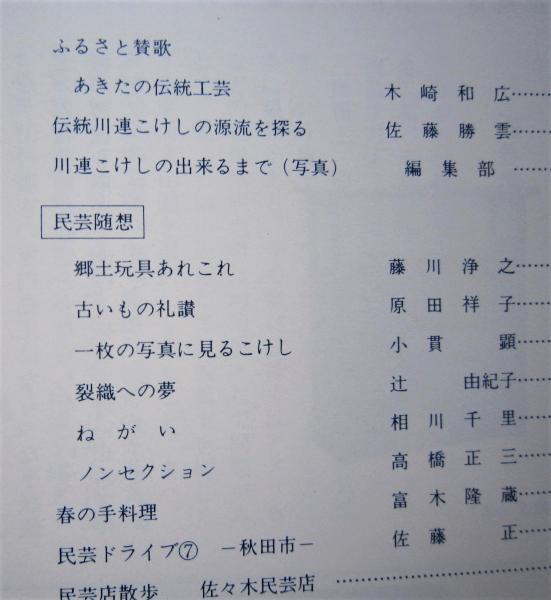 ふるさと賛歌
あきたの伝統工芸 木崎和広……
伝統川連こけしの源流を探る 佐藤勝雲……
川連こけしの出来るまで（写真） 編集部……
民芸随想
郷土玩具あれこれ 藤川浄之……
古いもの礼讃 原田祥子……
一枚の写真に見るこけし 小貫顕……
裂織への夢 辻由紀子……
ねがい 相川千里……
ノンセクション 高橋正三……
春の手料理 富木隆蔵……
民芸ドライブ⑦ －秋田市－ 佐藤正……
民芸店散歩 佐々木民芸店 ……………